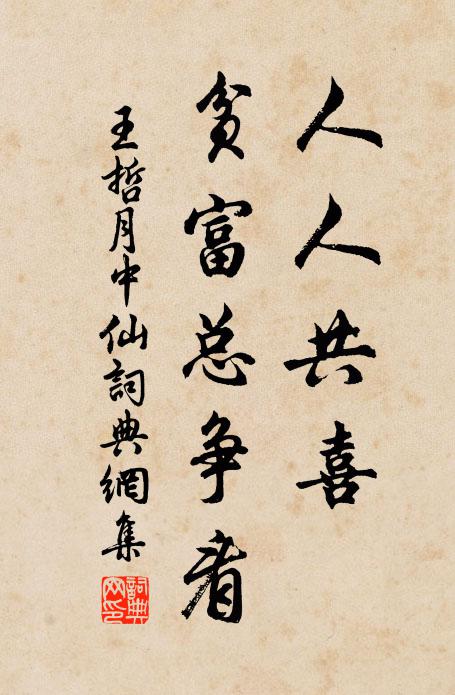 人人共喜
贫富总争看
王哲月中仙詞典網集
詞典
网印